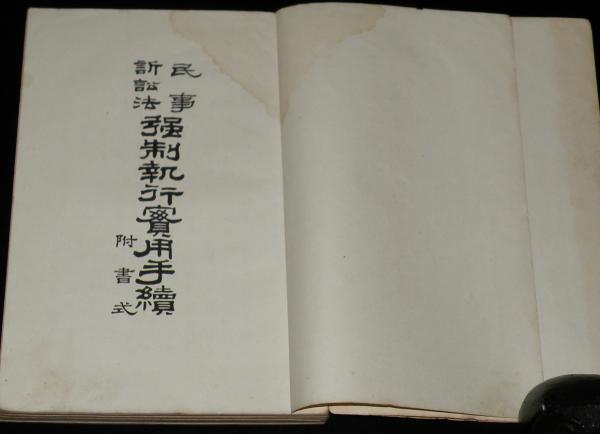 民事
訴訟法
强制執行實用手續
附書式